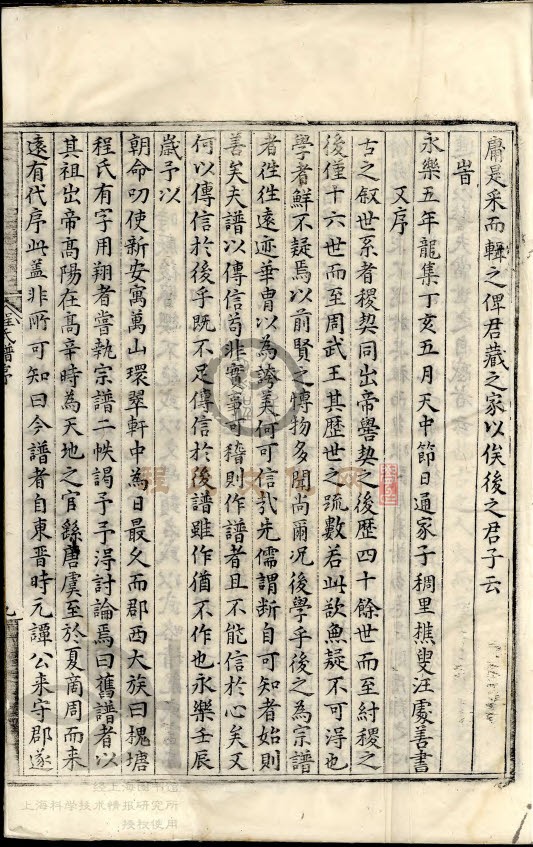 庸是采而輯之俾君藏之家以俟後之君子云
旹
永樂五年龍集丁亥五月天中節日通家子稠里樵叟汪處善書
又序
古之叙世系者稷契同出帝嚳契之後歷四十餘世而至紂稷之
後僅十六世而至周武王其歷世之疏數若此欲無疑不可淂也
學者鮮不疑焉以前賢之愽物多聞尚爾况後學乎後之為宗譜
者徃徃遠迹華冑以為誇美何可信㢤先儒謂断自可知者始則
善矣夫譜以傳信苟非實事可稽則作譜者且不能信於心矣又
何以傳信於後乎既不足傳信於後譜雖作猶不作也永樂壬辰
歲予以
朝命叨使新安寓萬山環翠軒中為日最乆而郡西大族曰槐塘
程氏有字用翔者嘗執宗譜二帙謁予予淂討論焉曰舊譜者以
其祖出帝髙陽在髙辛時為天地之官繇唐虞至於夏商周而来
遠有代序此盖非所可知曰今譜者自東晋時元譚公来守郡遂
程氏譜序
九
上海科學技术情报研究所
授权使用